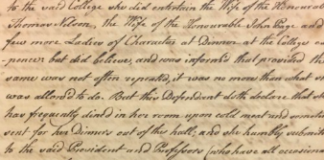 to the said College she did entertain the Wife of the Honourable
Thomas Nelson, the Wife of the Honourable John Page, and
few more Ladies of Character at Dinner at the College ex
pence but did believe, and was informed that provided the
same was not often repeated, it was no more than what
was allowed to do. But this Defendant doth declare that she
has frequently dined in her room upon cold meat and
sent for her Dinner out of the hall; and she humbly submits
to the said President and Professors (who have all occasional